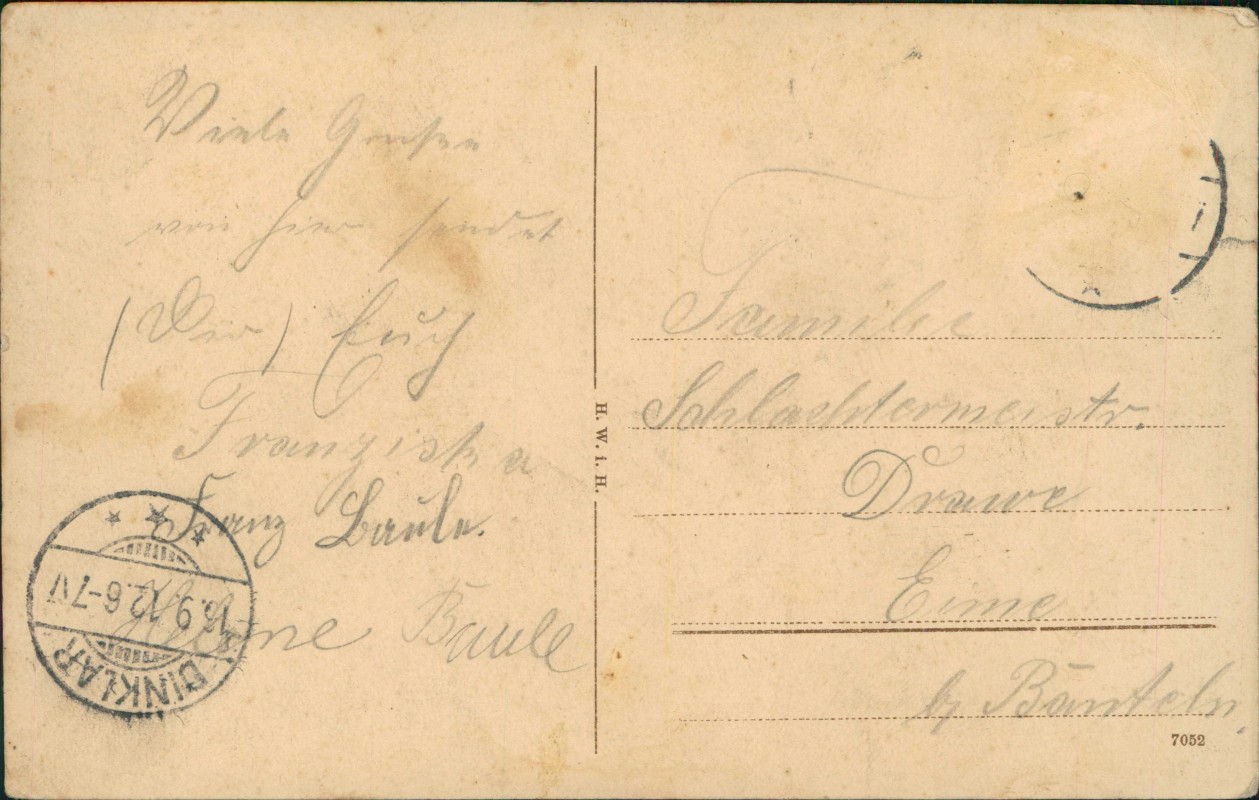 Viele Grüsse
von hier sendet
(Dir) Euch
Franziska
Franz Baule.
Baule
DINKLAR
16.9.12.6-7V
H. W. i. H.
Familie
Schlachtermeistr.
Drawe
Eime
b/ Bänteln.
7052